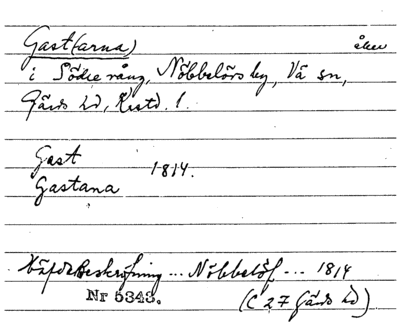 Gast(arna) åker
i Södre vång, Nöbbelövs by, Vä sn,
Gärds hd, Krstd. l.
Gast 1814.
Gastana
Beskrifning ... Nöbbelöf ... 1814
Nr 5343. (C 27 Gärds hd)